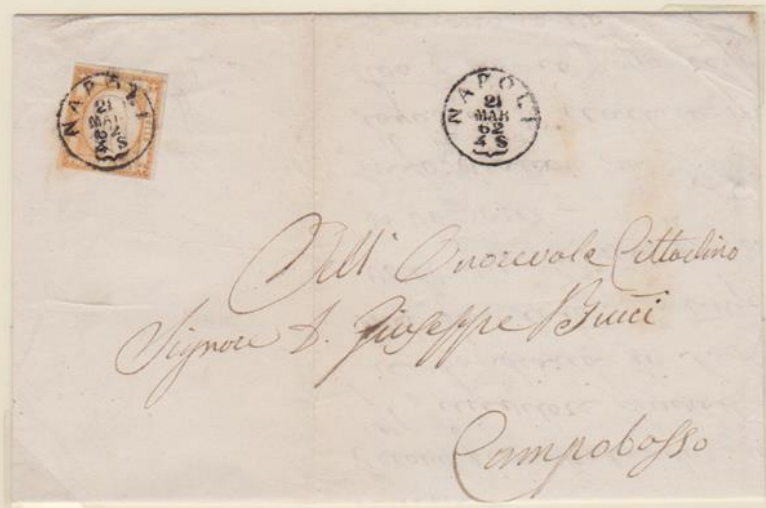 NAPOLI
21
MAR
62
4 S
NAPOLI
21
MAR
62
4 S
Dell' Onorevole Cittadino
Signore D. Giuseppe Bucci
Campobasso